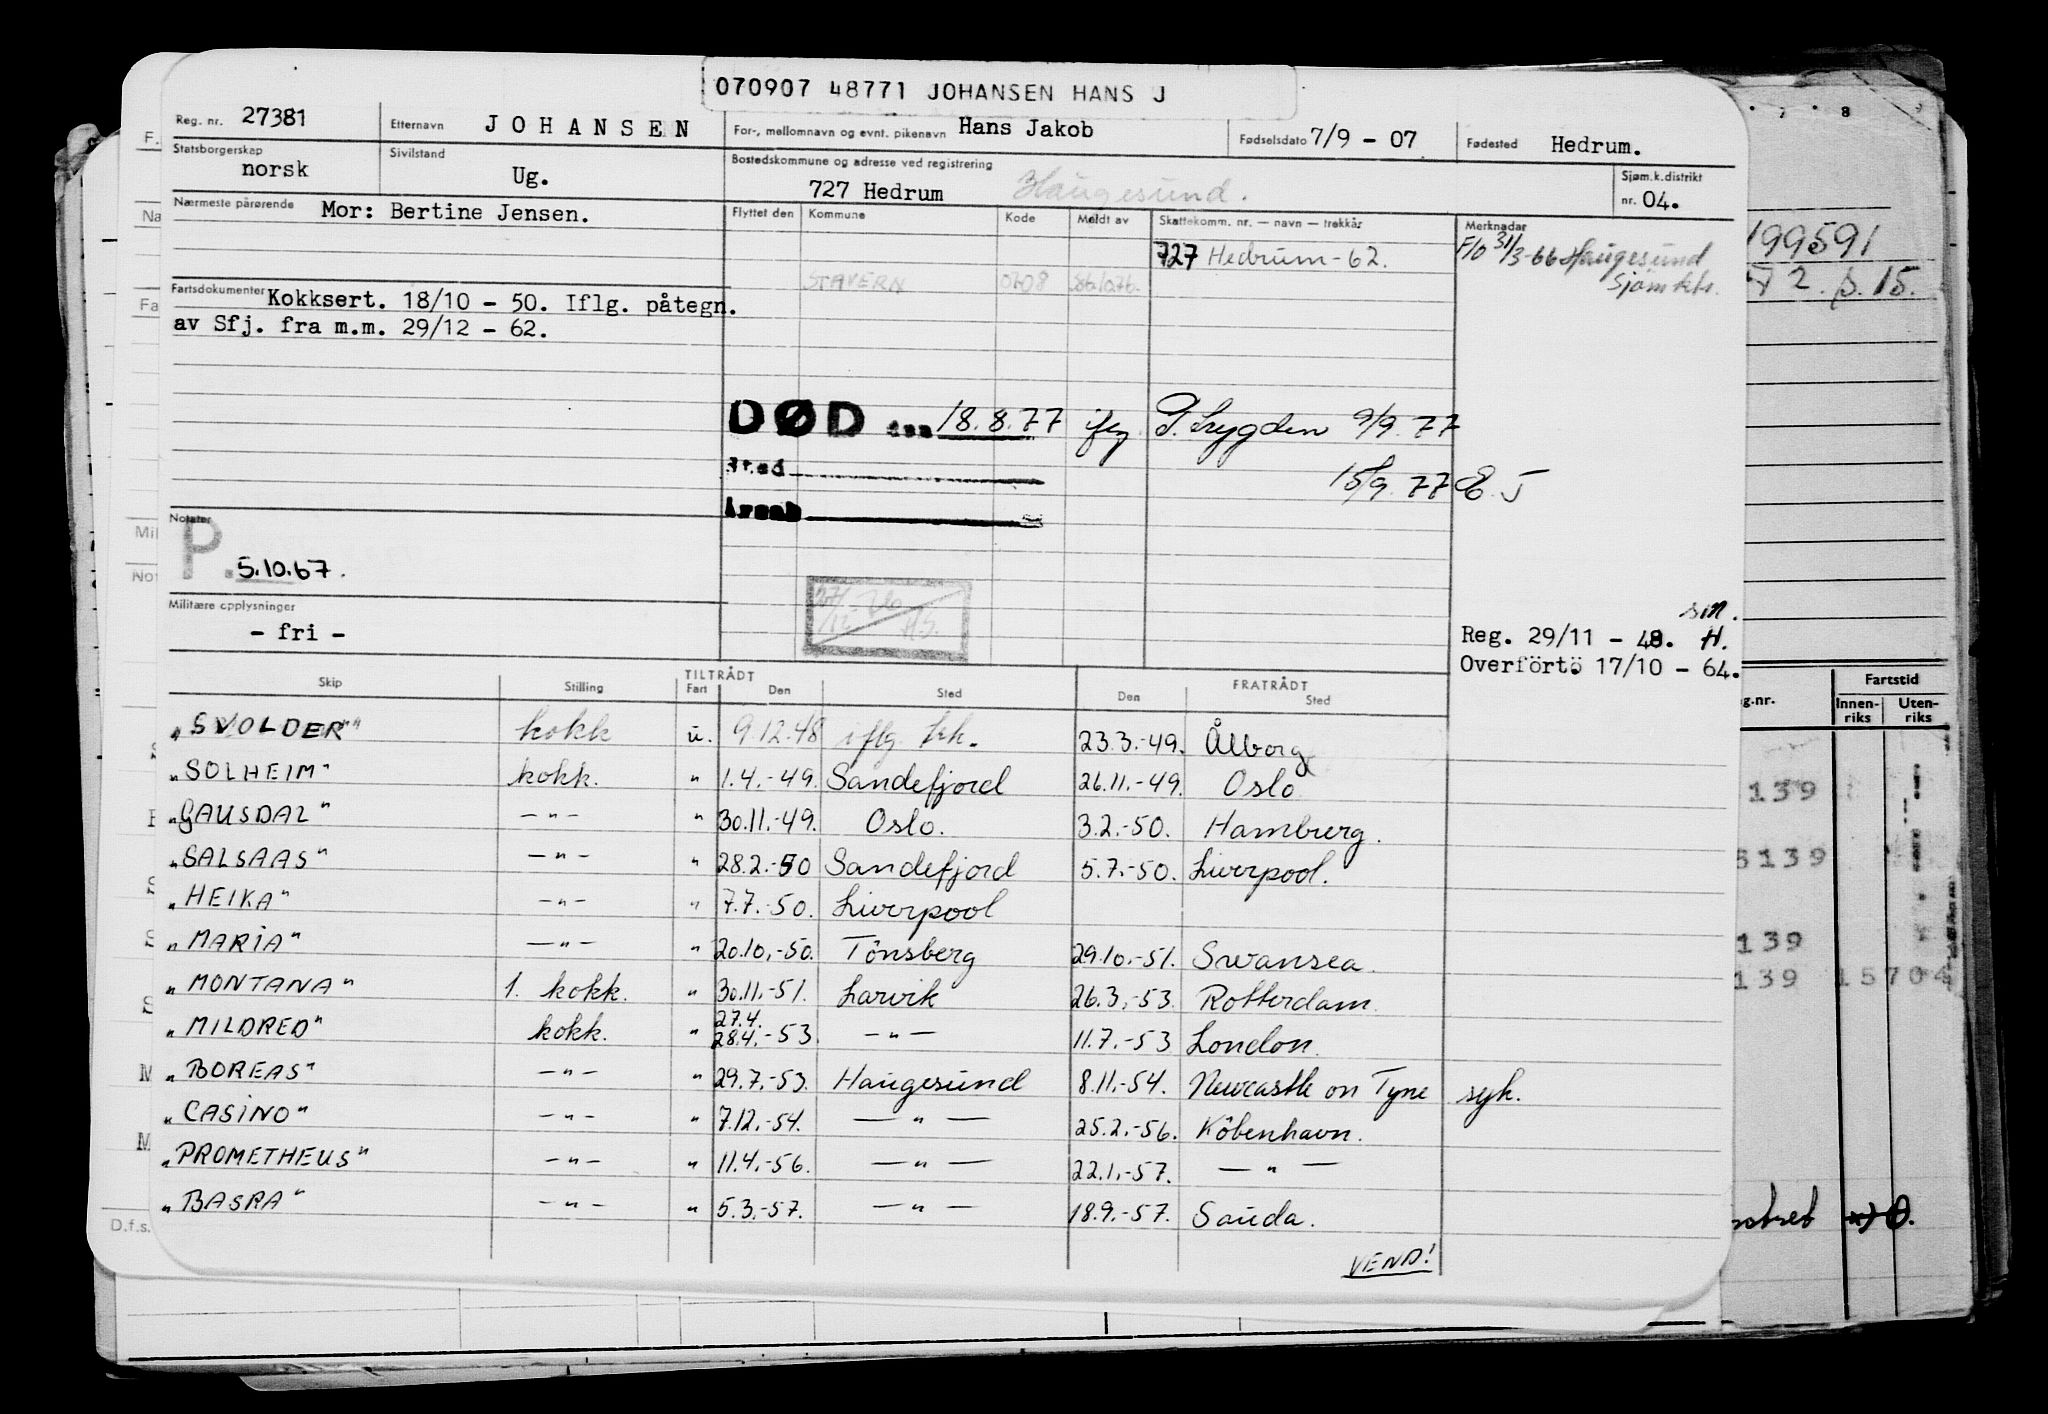 070907 48771 JOHANSEN HANS J
Reg. nr. 27381 Etternavn JOHANSEN For-, mellomnavn og evnt. pikenavn Hans Jakob Fødselsdato 7/9 - 07 Fødested Hedrum.
Statsborgerskap norsk Sivilstand Ug. Bostedskommune og adresse ved registrering 727 Hedrum Haugesund. Sjøm.k.distrikt nr. 04.
Nærmeste pårørende Mor: Bertine Jensen. Flyttet den Kommune Kode Meldt av Skattekomm. nr. — navn — trekkår Merknader
727 Hedrum-62. F/O 31/3-66 Haugesund
STAVERN 0708 Sjømktr.
Fartsdokumenter Kokksert. 18/10 - 50. Iflg. påtegn.
av Sfj. fra m.m. 29/12 - 62.
DØD den 18.8.77 ifg. 9/9.77
Sted 15/9.77 E.J
Årsak
Notater
P. 5.10.67.
Militære opplysninger
- fri -
sm.
Reg. 29/11 - 48. H.
Overførtö 17/10 - 64.
TILTRÅDT FRATRÅDT
Skip Stilling Fart Den Sted Den Sted
"SVOLDER" kokk u. 9.12.48 iflg. 23.3.-49. Ålborg
"SOLHEIM" kokk. " 1.4.-49. Sandefjord 26.11.-49. Oslo
"GAUSDAL" —"— " 30.11.-49. Oslo. 3.2.-50. Hamburg.
"SALSAAS" —"— " 28.2.-50 Sandefjord 5.7.-50. Liverpool.
"HEIKA" —"— " 7.7.-50. Liverpool
"MARIA" —"— " 20.10.-50. Tönsberg 29.10.-51. Swansea.
"MONTANA" 1. kokk. " 30.11.-51. Larvik 26.3.-53. Rotterdam.
27.4.
"MILDRED" kokk. " 28.4.-53. —"— 11.7.-53 London.
"BOREAS" —"— " 29.7.-53. Haugesund 8.11.-54. Newcastle on Tyne syk.
"CASINO" —"— " 7.12.-54. —"— 25.2.-56. Köbenhavn.
"PROMETHEUS" —"— " 11.4.-56. —"— 22.1.-57. —"—
"BASRA" —"— " 5.3.-57. —"— 18.9.-57. Sauda.
VEND!
F.
Na
Fa
Mil
Not
D.f.s.
7 8
199591
2. p. 15.
g.nr. Fartstid
Innen-riks Uten-riks
139
5139
139
139 15704